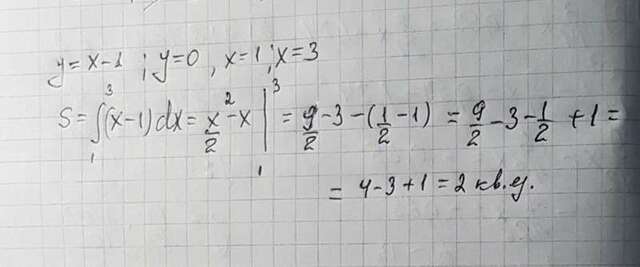 y=x-1 ; y=0 , x=1 ; x=3
S = ∫₁³ (x-1) dx = x²/2 - x |₁³ = 9/2 - 3 - (1/2 - 1) = 9/2 - 3 - 1/2 + 1 =
= 4-3+1 = 2 кв.ед.